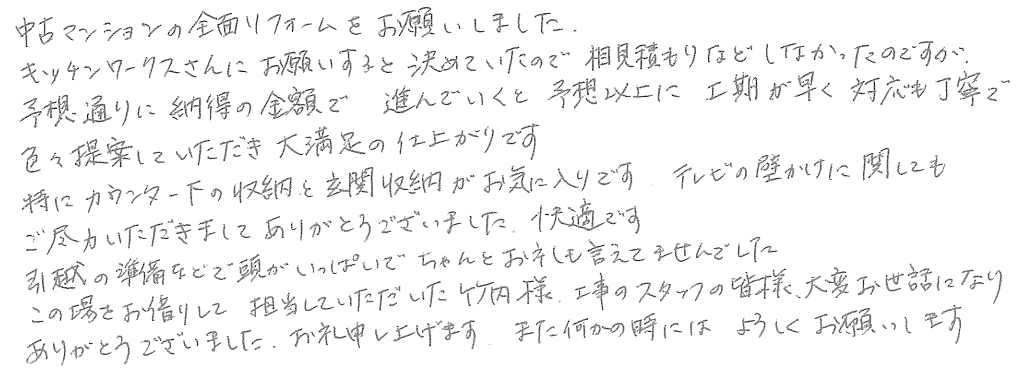 中古マンションの全面リフォームをお願いしました.
キッチンワークスさんにお願いすると決めていたので相見積もりなどしなかったのですが、
予想通りに納得の金額で 進んでいくと予想以上に工期が早く対応も丁寧で
色々提案していただき大満足の仕上がりです
特にカウンター下の収納と玄関収納がお気に入りです. テレビの壁かけに関しても
ご尽力いただきましてありがとうございました. 快適です
引越の準備などで頭がいっぱいでちゃんとお礼も言えてませんでした
この場をお借りして担当していただいた竹内様、工事のスタッフの皆様、大変お世話になり
ありがとうございました. お礼申し上げます. また何かの時にはよろしくお願いします